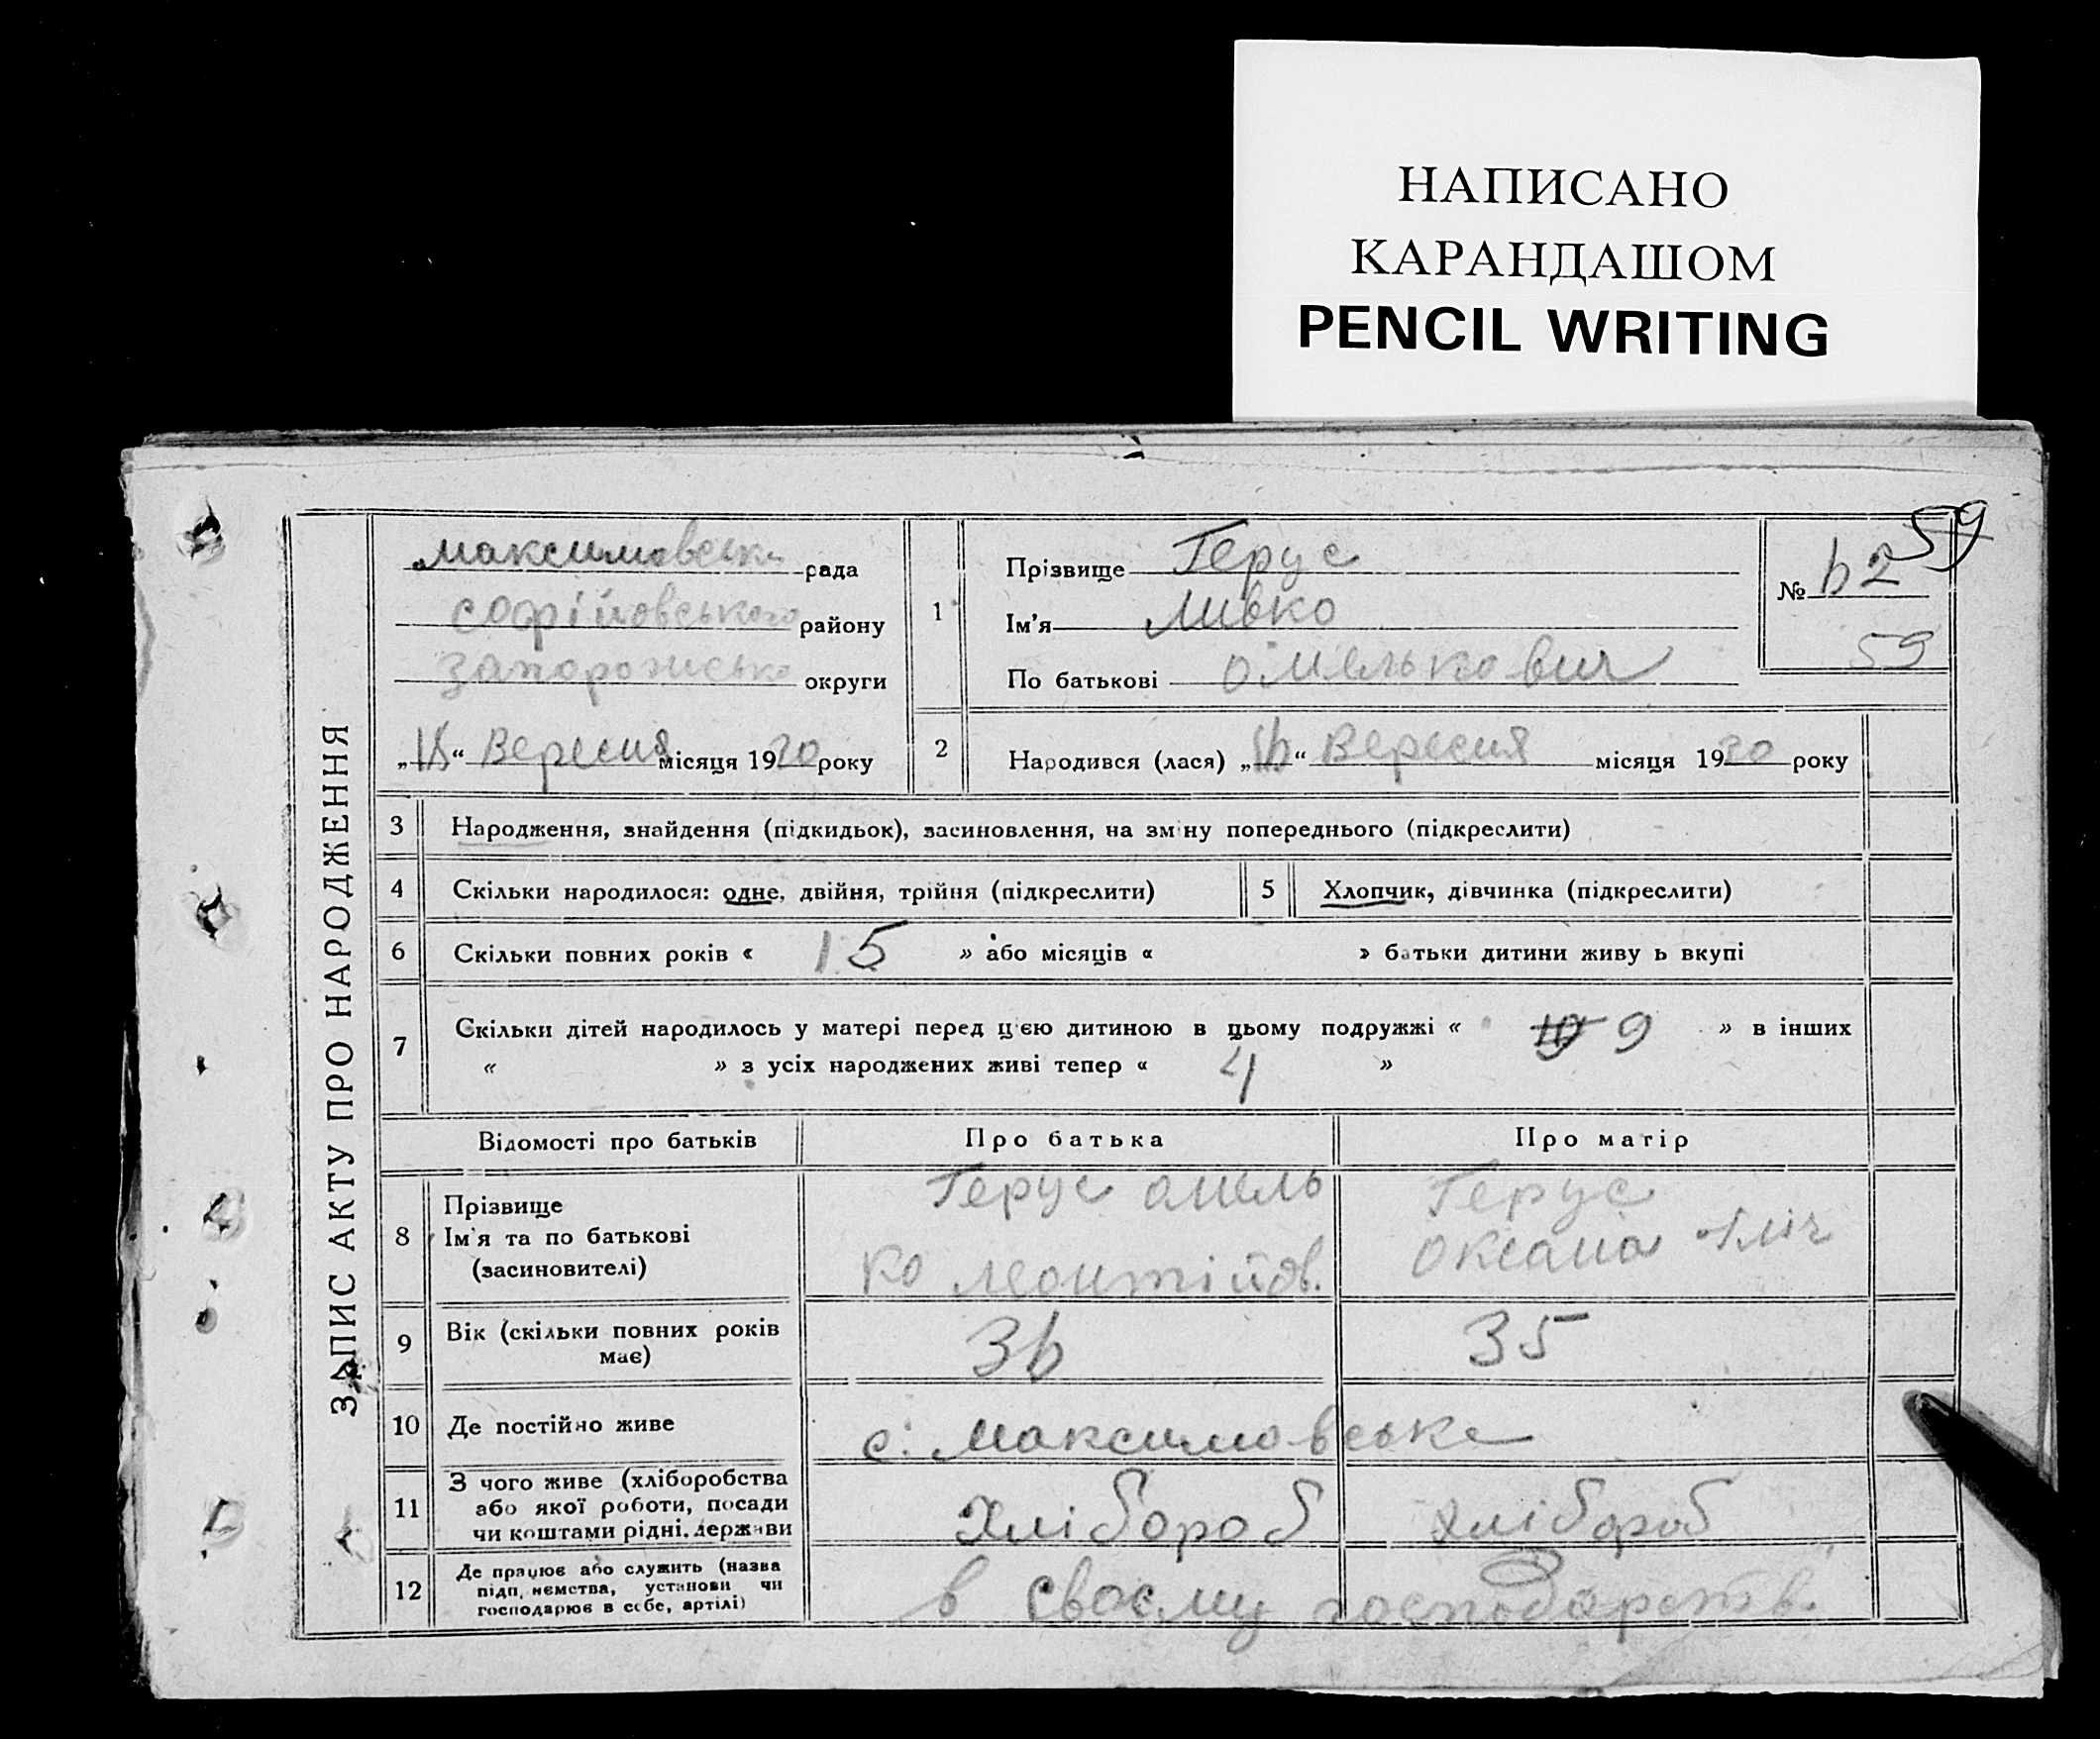 НАПИСАНО
КАРАНДАШОМ
PENCIL WRITING
59
ЗАПИС АКТУ ПРО НАРОДЖЕННЯ
Максимовськ рада
Софійовського району
Запорожсько округи
„ “ Вересня місяця 1930 року
1
Прізвище Герус
Ім’я Мивко
По батькові Омелькович
№ 62
59
2
Народився (лася) „ “ Вересня місяця 1930 року
3 Народження, знайдення (підкидьок), засиновлення, на зміну попереднього (підкреслити)
4 Скільки народилося: одне, двійня, трійня (підкреслити)
5 Хлопчик, дівчинка (підкреслити)
6 Скільки повних років « 15 » або місяців « » батьки дитини живу ь вкупі
7 Скільки дітей народилось у матері перед цією дитиною в цьому подружжі « 9 » в інших
« » з усіх народжених живі тепер « 4 »
Відомості про батьків Про батька Про матір
8 Прізвище
Ім’я та по батькові
(засиновителі)
Герус Омель
ко Леонтійов.
Герус
Оксана
9 Вік (скільки повних років
має)
36 35
10 Де постійно живе с. Максимовське
11 З чого живе (хліборобства
або якої роботи, посади
чи коштами рідні, держави
Хлібороб хлібороб
12 Де працює або служить (назва
підп, ємства, установи чи
господарює в себе, артілі)
в своєму господарств.